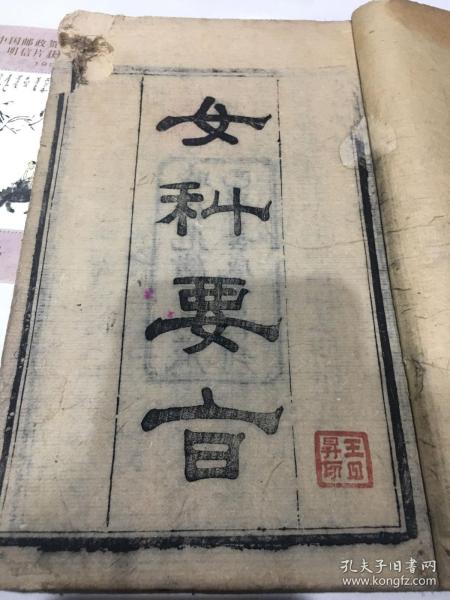 女科要旨
中国邮政贺
明信片获
王日
昇印
孔夫子旧书网
www.kongfz.com